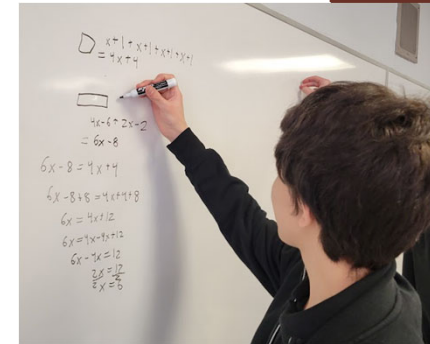 x+1+x+1+x+1+x+1
= 4x+4
4x-6+2x-2
= 6x-8
6x-8=4x+4
6x-8+8=4x+4+8
6x=4x+12
6x=4x-4x+12
6x-4x=12
2x=12
2 2
x=6